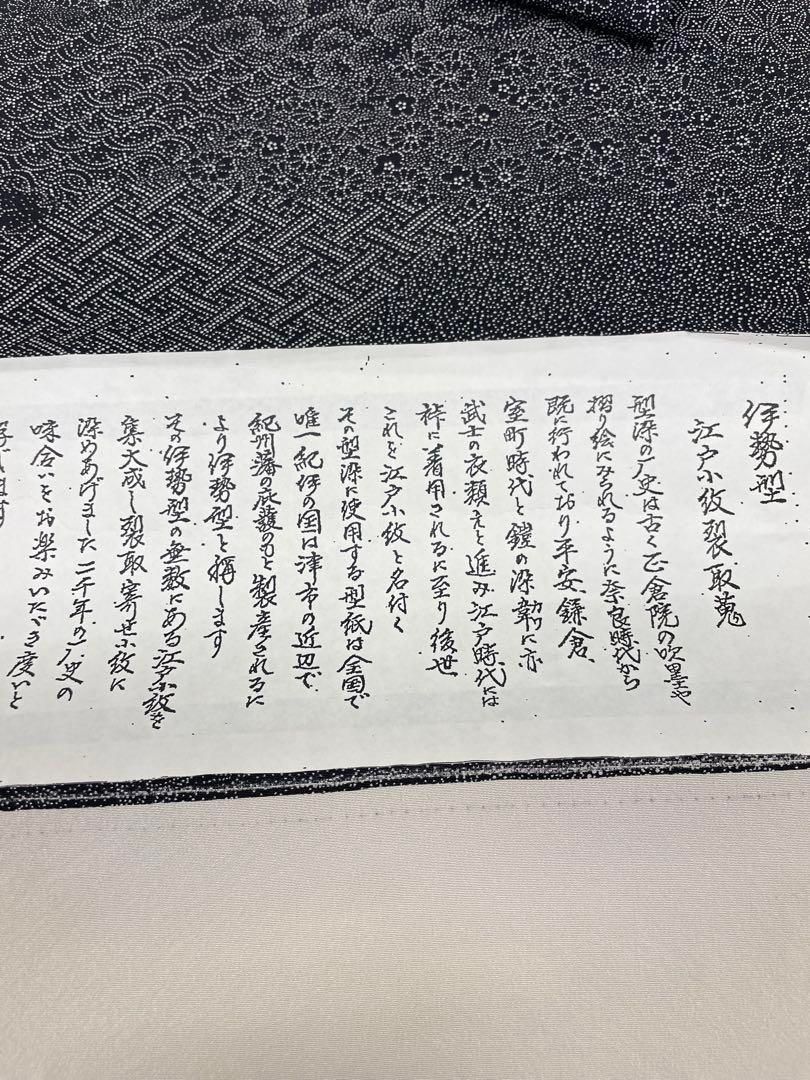 伊勢型
江戸小紋裂取蒐
型染の歴史は古く正倉院の吹墨や
摺り絵にみられるように奈良時代から
既に行われており平安、鎌倉、
室町時代と鎧の染革に亦
武士の衣類えと進み江戸時代には
裃に着用されるに至り後世
これを江戸小紋と名付く
その型染に使用する型紙は全国で
唯一紀伊の国は津市の近辺で
紀州藩の庇護のもと製産されるに
より伊勢型と稱します
その伊勢型の無数にある江戸小紋を
集大成し裂取寄せ小紋に
染めあげました 二千年の歴史の
味合いをお楽みいただき度いと